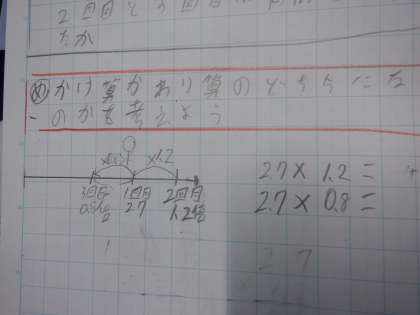 2回目と3回目は
たか
め かけ算かわり算のどちらにな
るのかを考えよう
×0.8 ×1.2
3回目 1回目 2回目
0.8倍 27 1.2倍
27×1.2=
27×0.8=
27